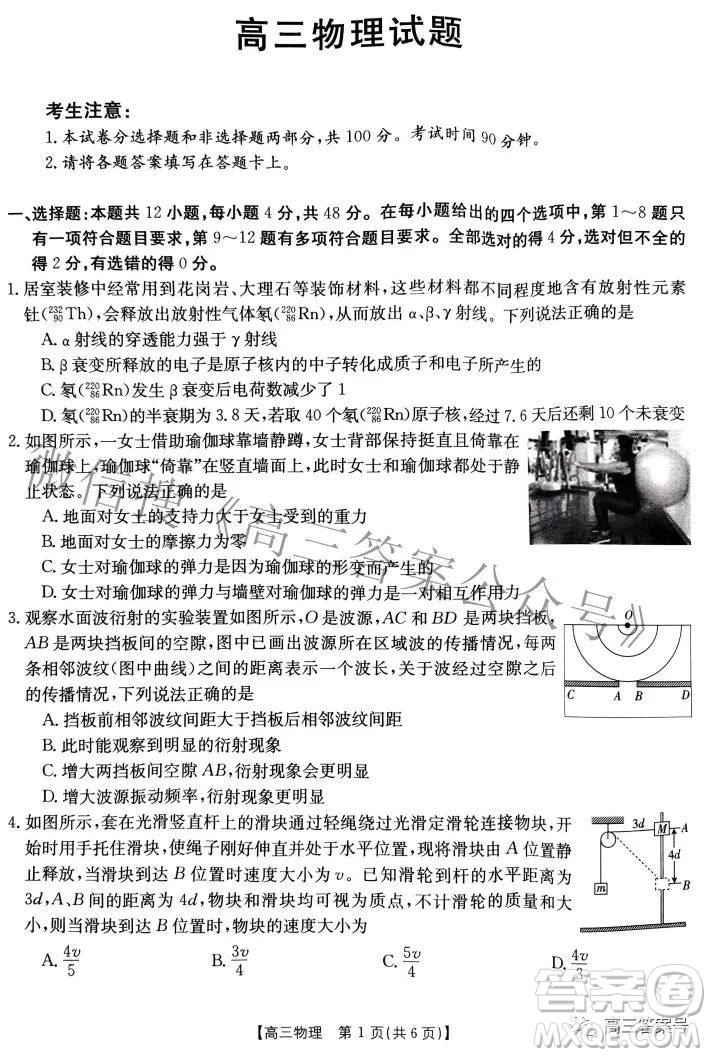 高三物理试题
考生注意:
1.本试卷分选择题和非选择题两部分,共100分。考试时间90分钟。
2.请将各题答案填写在答题卡上。
一、选择题:本题共12小题,每小题4分,共48分。在每小题给出的四个选项中,第1~8题只
有一项符合题目要求,第9~12题有多项符合题目要求。全部选对的得4分,选对但不全的
得2分,有选错的得0分。
1.居室装修中经常用到花岗岩、大理石等装饰材料,这些材料都不同程度地含有放射性元素
钍(²³²₉₀Th),会释放出放射性气体氡(²²⁰₈₆Rn),而氡会发生放射性衰变,放出α、β、γ射线。下列说法正确的是
A.α射线的穿透能力强于γ射线
B.β衰变所释放的电子是原子核内的中子衰变成质子和电子所产生的
C.氡(²²⁰₈₆Rn)发生β衰变后电荷数减少了1
D.氡(²²⁰₈₆Rn)的半衰期为3.8天,若取40个氡(²²⁰₈₆Rn)原子核,经过7.6天后还剩10个未衰变
2.如图所示,一女士借助瑜伽球靠墙静蹲,女士背部保持挺直且倚靠在
瑜伽球上,瑜伽球“倚靠”在竖直墙面上,此时女士和瑜伽球都处于静
止状态。下列说法正确的是
A.地面对女士的支持力大于女士受到的重力
B.地面对女士的摩擦力为零
C.女士对瑜伽球的弹力是因为瑜伽球的形变而产生的
D.女士对瑜伽球的弹力与墙壁对瑜伽球的弹力大小相等
3.观察水面波衍射的实验装置如图所示,O是波源,AC和BD是两块挡板,
AB是两块挡板间的空隙,图中已画出波源所在区域波的传播情况,每两
条相邻波纹(图中曲线)之间的距离表示一个波长,关于波经过空隙之后
的传播情况,下列说法正确的是
O
C A B D
A.挡板前相邻波纹间距大于挡板后相邻波纹间距
B.此时能观察到明显的衍射现象
C.增大两挡板间空隙AB,衍射现象会更明显
D.增大波源振动频率,衍射现象会更明显
4.如图所示,套在光滑竖直杆上的滑块通过轻绳绕过光滑定滑轮连接物块,开
始时用手托住滑块,使绳子刚好伸直并处于水平位置,现将滑块由A位置静
止释放,当滑块到达B位置时速度大小为v。已知滑轮到杆的距离为
3d,A、B间的距离为4d,物块和滑块均可视为质点,不计滑轮的大小和质
量,则当滑块到达B位置时,物块的速度大小为
3d M A
4d
m B
A.4v/5 B.3v/4 C.5v/4 D.4v/3
【高三物理 第1页(共6页)】
微信搜《高三答案公众号》
高三答案号
答案卷